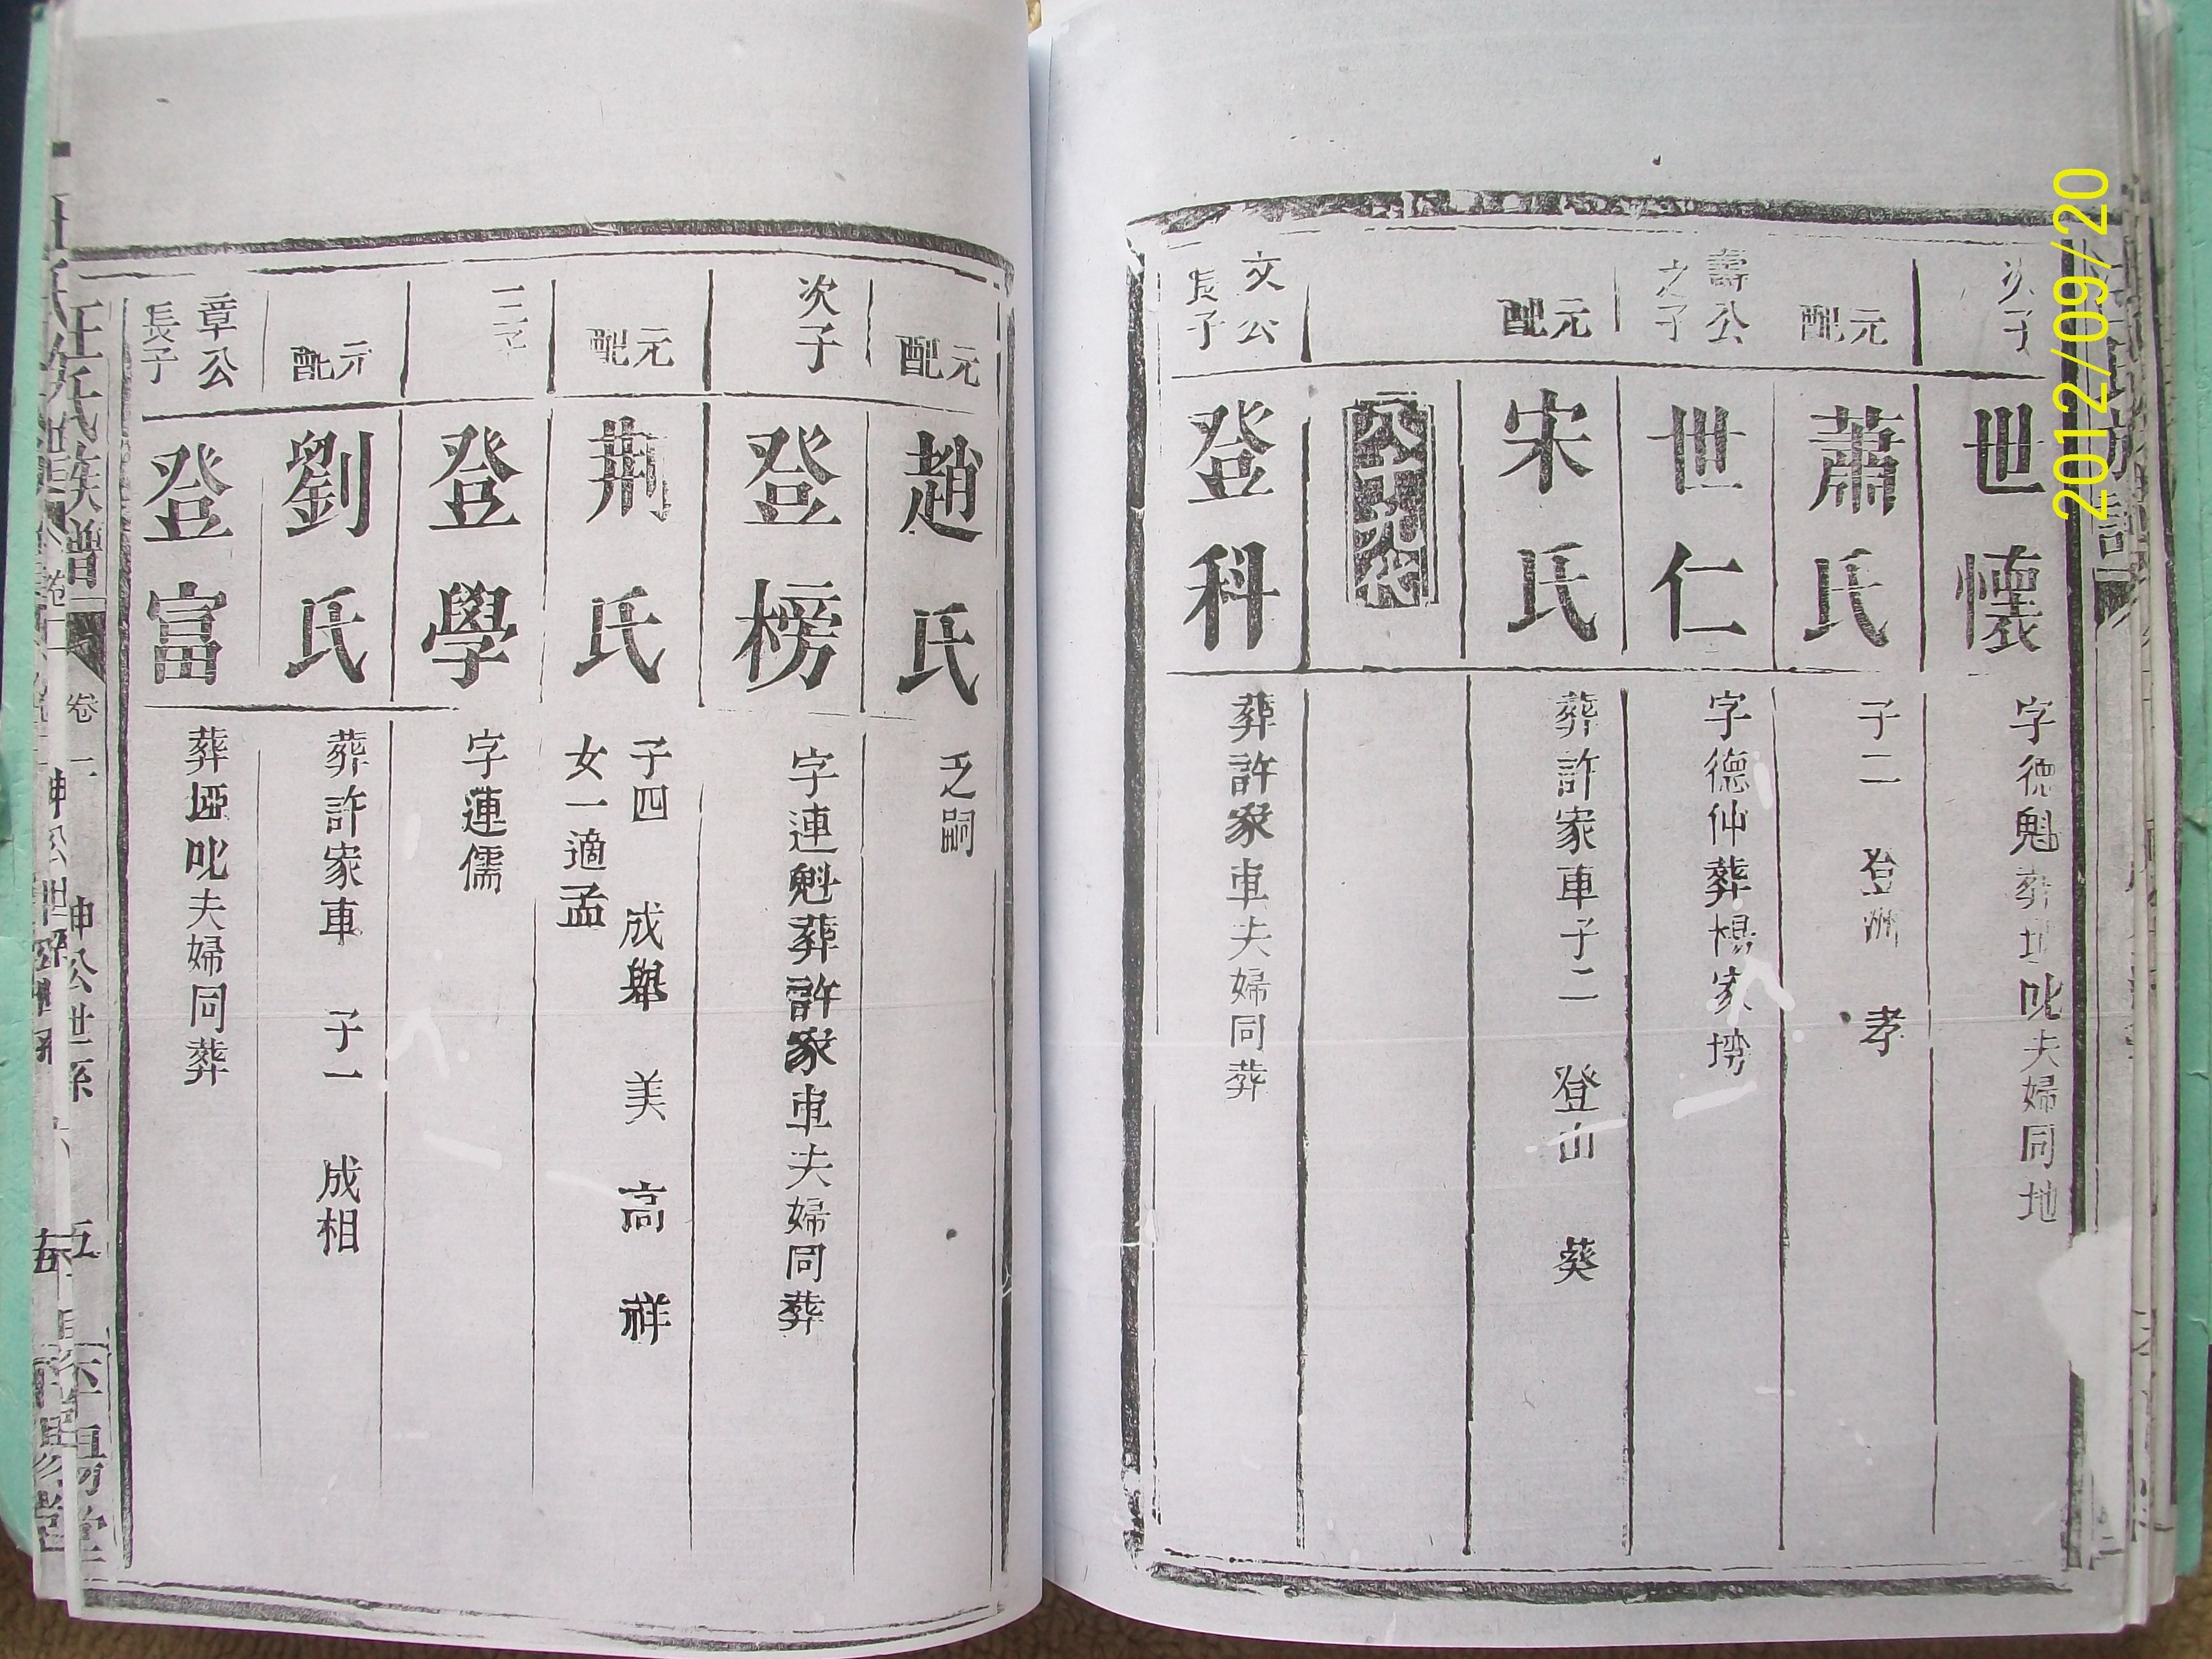 次子
世懷
字德魁葬埡叱夫婦同地
元配
蕭氏
子二 登洲 孝
壽公
之子
世仁
字德仲葬楊家塝
元配
宋氏
葬許家車子二 登山 葵
八十九代
文公
長子
登科
葬許家車夫婦同葬
元配
趙氏
乏嗣
次子
登榜
字連魁葬許家車夫婦同葬
元配
荆氏
子四 成舉 美 高 祥
女一適孟
三子
登學
字蓮儒
元配
劉氏
葬許家車 子一 成相
章公
長子
登富
葬埡叱夫婦同葬
任氏族譜
卷一
坤公世系
五
2012/09/20